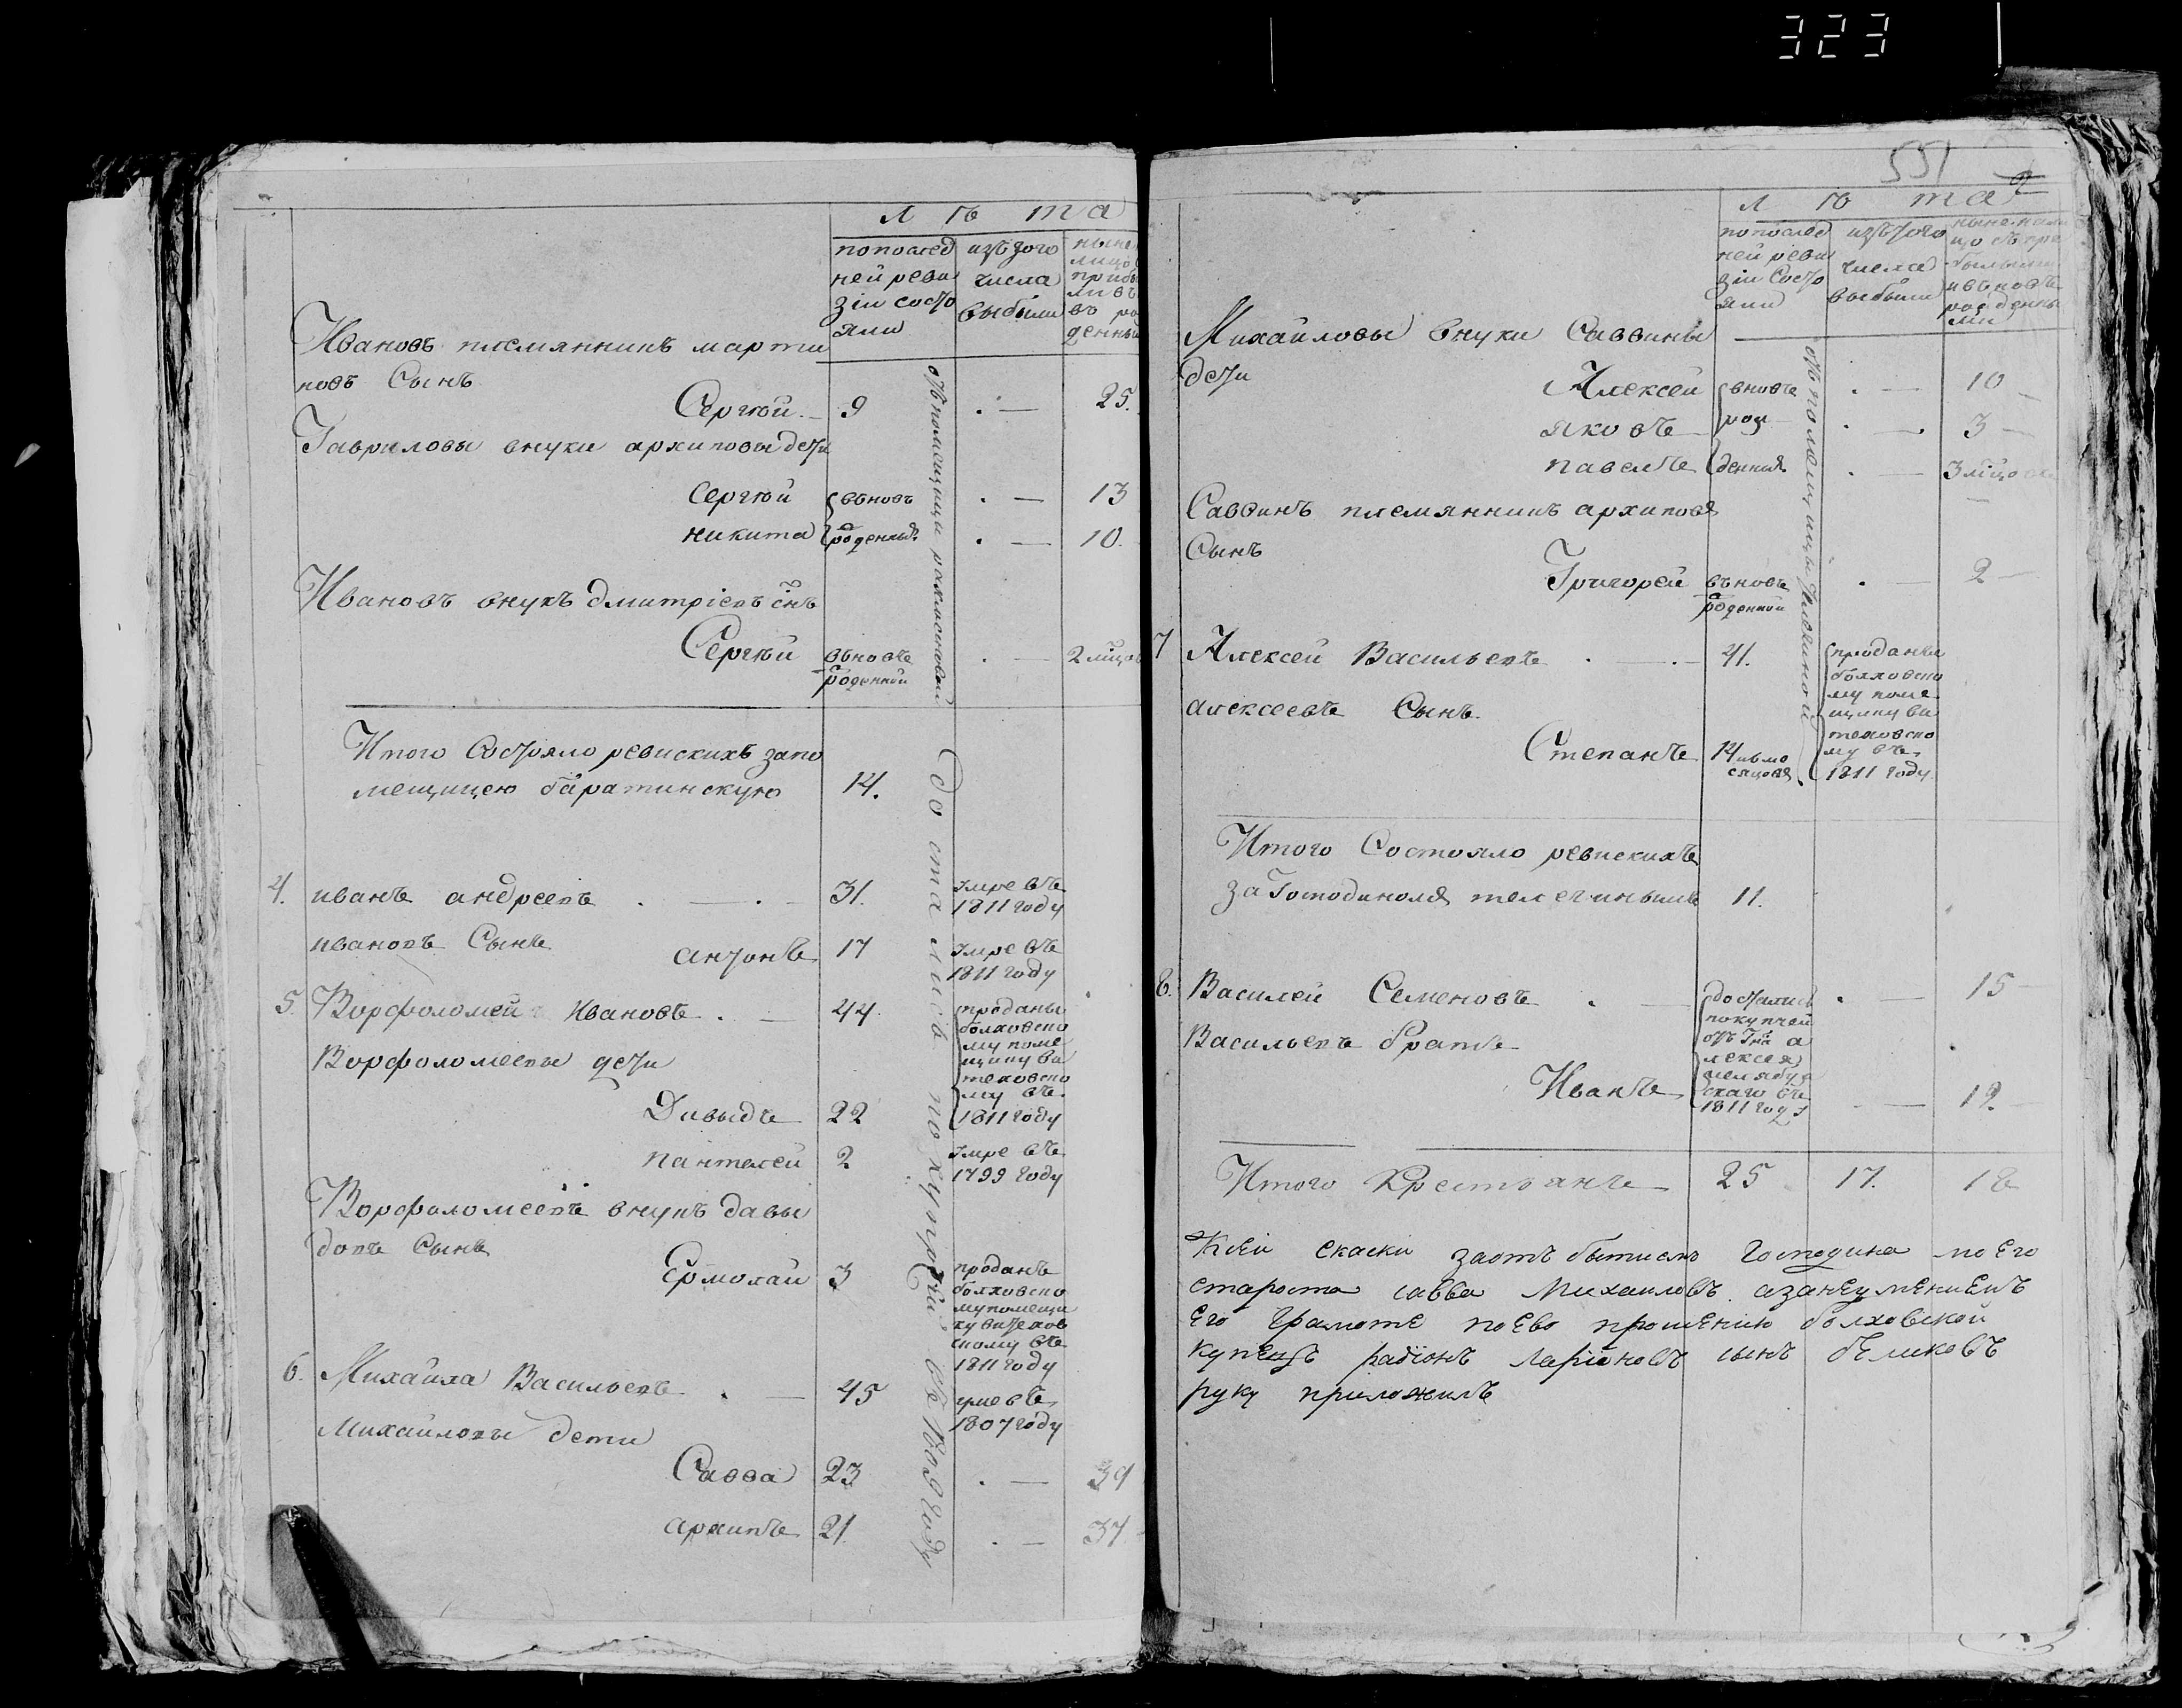 323
лѣта
попослед
ней реви
зіи состо
яли
изътого
числа
выбыли
Ивановъ племянникъ марти
новъ Сынъ
Сергѣй 9 . — 25.
Гавриловы внуки архиповы дети
Сергѣй вновъ . — 13
никита роденныя . — 10.
Ивановъ внукъ дмитріевъ снъ
Сергѣй вновь . — 2 мцов
роденной
отъ помещицы
Итого Состояло ревискихъ запо
мещицею баратинскую 14.
4. иванъ андреевъ . — . — 31. умре въ
1811 году
ивановъ Сынъ
антонъ 17 умре въ
1811 году
5. Ворфоломей Ивановъ . — 44. проданы
болховско
му поме
щику ви
теховско
му въ
1811 году
Ворфоломеевы дети
Давыдъ 22
пантелей 2 умре въ
1799 году
Ворфоломеевъ внукъ давы
довъ Сынъ
Ермолай 3 проданъ
болховско
му помещи
ку витехов
скому въ
1811 году
6. Михайла Васильевъ . — 45 умре въ
1807 году
Михайловы дети
Савва 23 . — 39
архипъ 21. . — 37
Достались по купчей въ году
551
лѣта
попослед
ней реви
зіи состо
яли
изътого
числа
выбыли
Михайловы внуки Саввины
дети
Алексей вновь . — 10
яковъ рож . — 3 —
павелъ денныя . — 3 мцовъ
Саввинъ племянникъ архиповъ
Сынъ
Григорей вьновь . — 2 —
роденной
отъ помещицы
7 Алексей Васильевъ . — . — 41. проданы
болховско
му поме
щику ви
теховско
му въ
1811 году
алексеевъ Сынъ
Степанъ 14
Итого Состояло ревискихъ
за Господиномъ телегинымъ 11.
8. Василей Семеновъ . — достались . — 15 —
покупчей
отъ Гна а
лексея
скаго въ
1811 году
Васильевъ братъ
Иванъ — 12. —
Итого Крестьянъ 25 17. 18
Ксей скаски заотъ бытиемъ господина по Его
староста савва Михаиловъ азанЕумЕниЕмъ
Его Грамоте поЕво прошЕнию болховской
купЕцъ радіонъ Ларіоновъ сынъ бЕликовъ
руку приложилъ